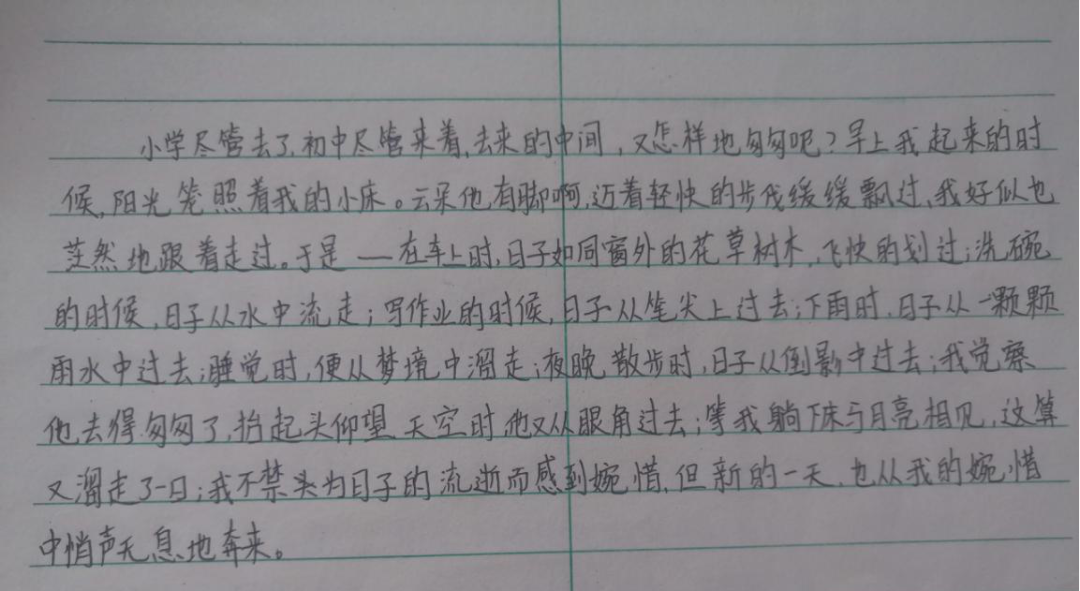 小学尽管去了,初中尽管来着,去来的中间,又怎样地匆匆呢?早上我起来的时
候,阳光笼照着我的小床。云朵他有脚啊,迈着轻快的步伐缓缓飘过,我好似也
茫然地跟着走过。于是——在车上时,日子如同窗外的花草树木,飞快的划过;洗碗
的时候,日子从水中流走;写作业的时候,日子从笔尖上过去;下雨时,日子从一颗颗
雨水中过去;睡觉时,便从梦境中溜走;夜晚散步时,日子从倒影中过去;我觉察
他去得匆匆了,抬起头仰望天空时,他又从眼角过去;等我躺下床与月亮相见,这算
又溜走了一日;我不禁头为日子的流逝而感到婉惜,但新的一天,也从我的婉惜
中悄声无息地奔来。